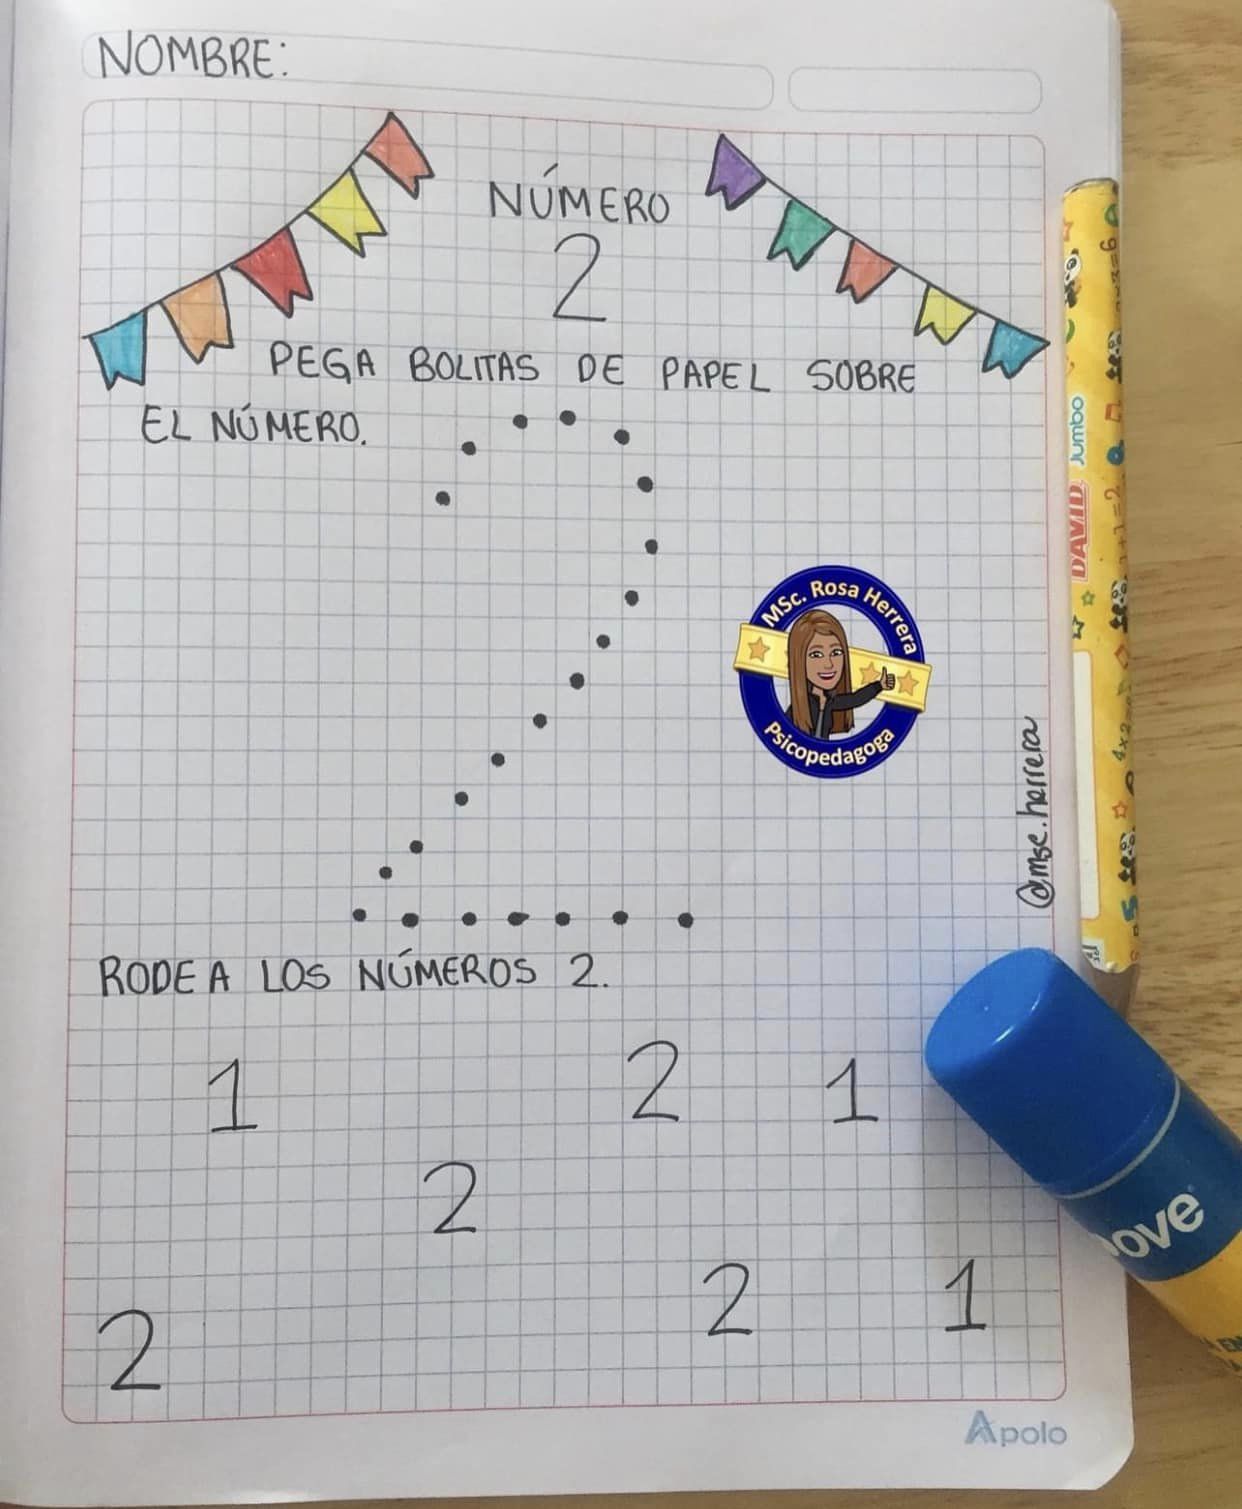 NOMBRE:
NÚMERO
2
PEGA BOLITAS DE PAPEL SOBRE
EL NÚMERO.
MSc. Rosa Herrera
Psicopedagoga
@msc.herrera
DAVID Jumbo
RODEA LOS NÚMEROS 2.
1 2 1
2
2 1
2
ove
Apolo